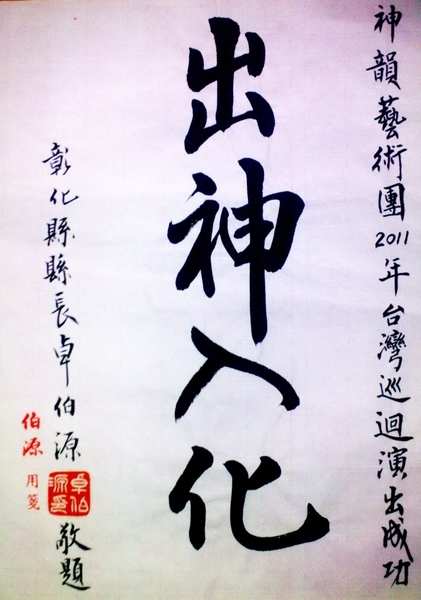 神韻藝術團2011年台灣巡迴演出成功
出神入化
彰化縣縣長卓伯源 敬題
卓伯源印
伯源用箋